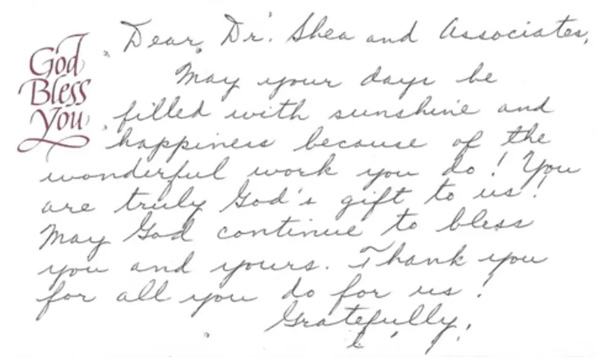 God
Bless
You
Dear Dr. Shea and Associates,
May your days be
filled with sunshine and
happiness because of the
wonderful work you do! You
are truly God's gift to us!
May God continue to bless
you and yours. Thank you
for all you do for us!
Gratefully,